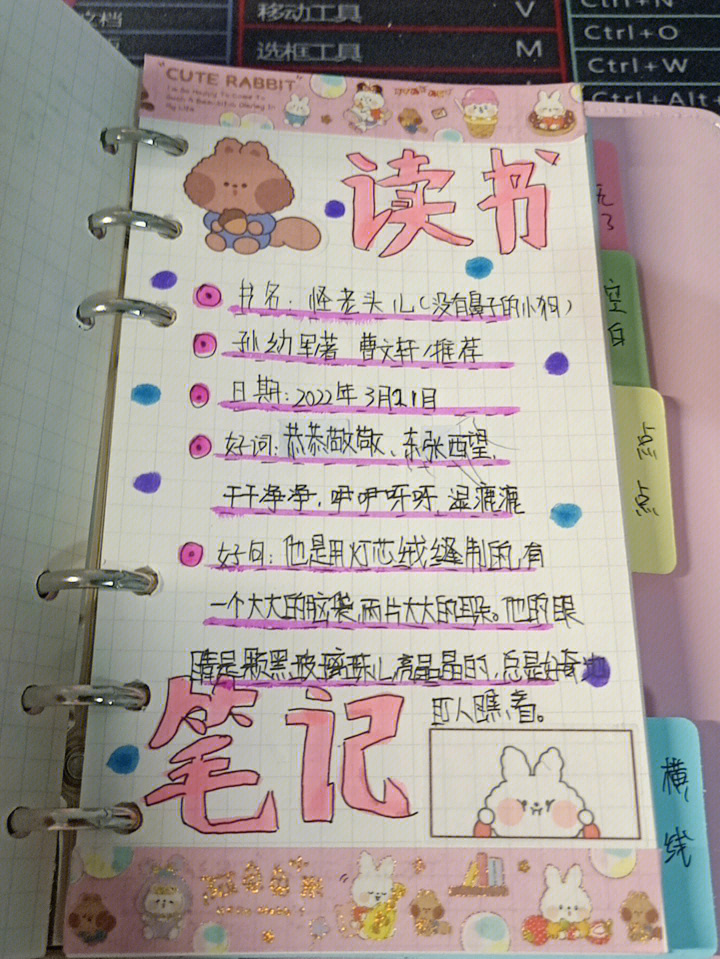 文档
移动工具 V
选框工具 M
Ctrl+N
Ctrl+O
Ctrl+W
Ctrl+Alt+
"CUTE RABBIT"
读书
书名：怪老头儿（没有鼻子的小狗）
孙幼军著 曹文轩/推荐
日期：2022年3月21日
好词：恭恭敬敬、东张西望、
干干净净，咿咿呀呀，湿漉漉
好句：他是用灯芯绒缝制的，有
一个大大的脑袋，两片大大的耳朵。他的眼
睛是两颗黑玻璃珠儿，亮晶晶的，总是好奇地
盯人瞧着。
笔记
空白
点点
横线